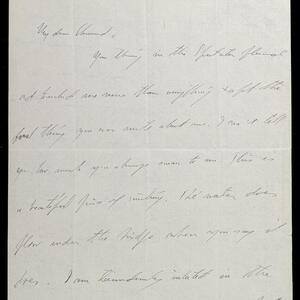 My dear Edmund,
Your thing in the Spectator pleased
and touched me more than anything except the
first thing you ever wrote about me. I can't tell
you how much you always mean to me. This is
a beautiful piece of writing. The water does
flow under the bridge when you say it
does. I am tremendously interested in the